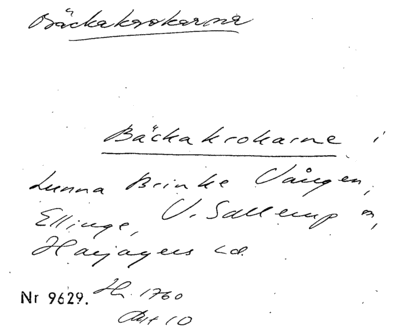 Bäckakrokarna
Bäckakrokarne i
Lunna Brinke Vången,
Ellinge, V. Sallerup sn,
Harjagers hd.
Nr 9629. Hn. 1760
Akt 10